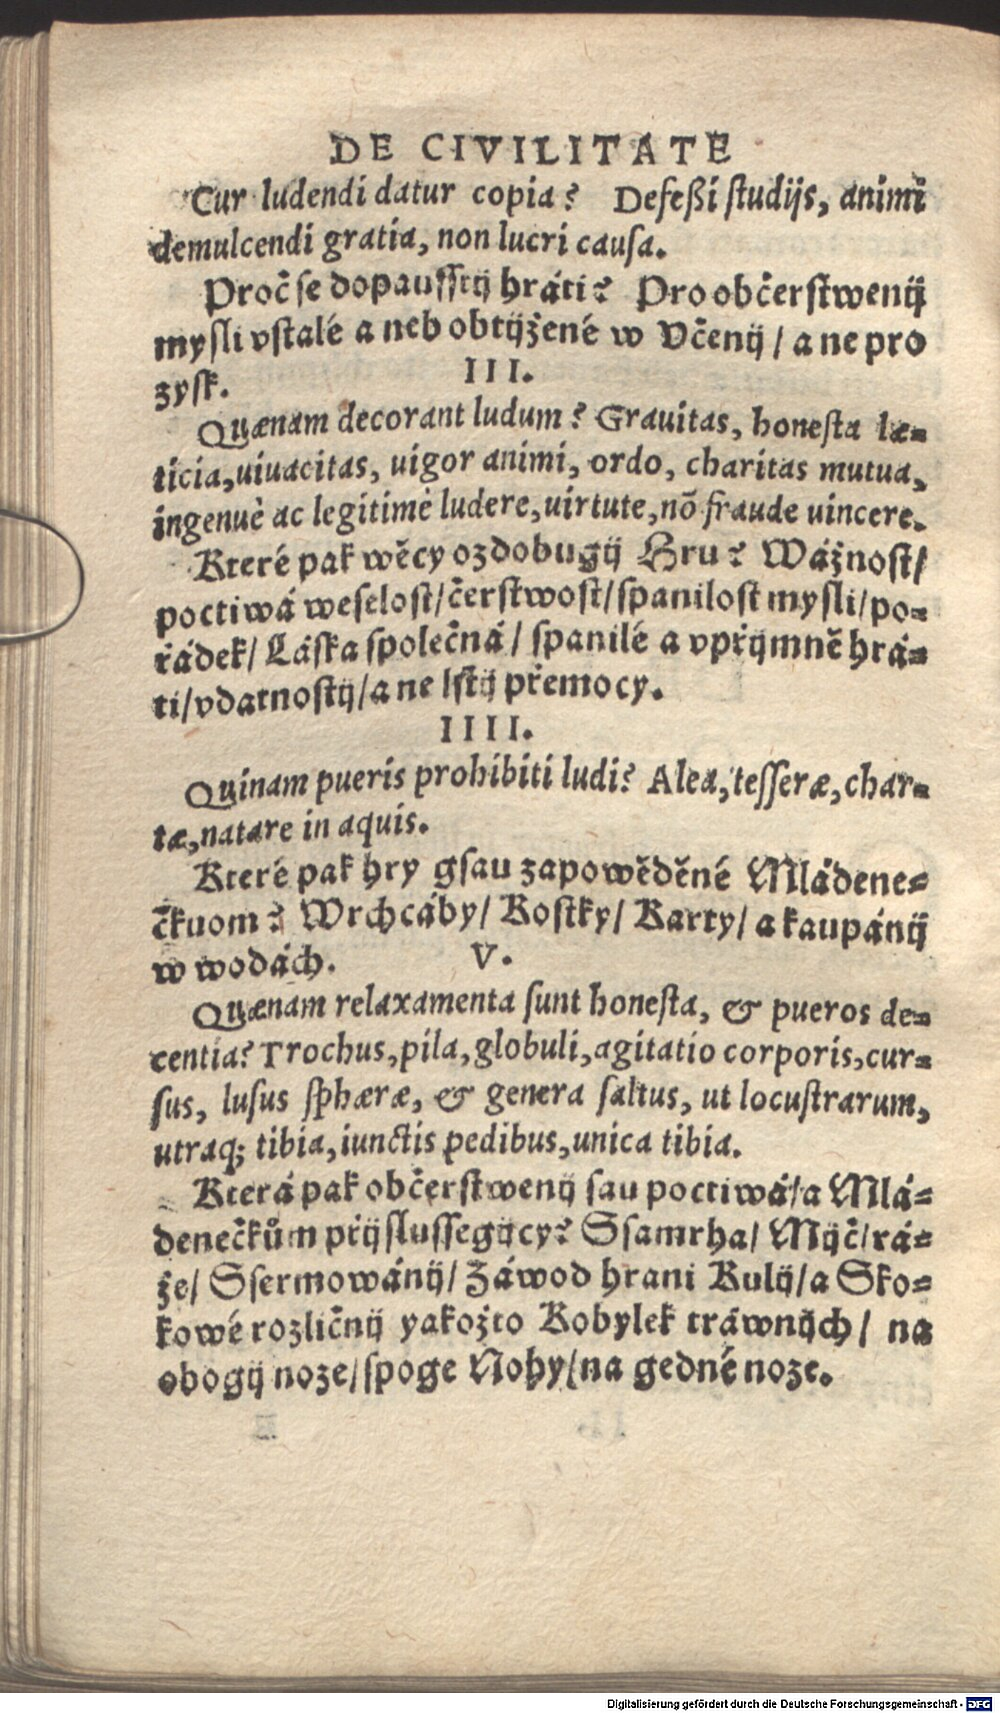 DE CIVILITATE
Cur ludendi datur copia? Defeßi ſtudijs, animi
demulcendi gratia, non lucri cauſa.
Procž ſe dopauſſtij hráti? Pro občerſtwenij
myſli vſtalé a neb obtijžené w Včenij / a ne pro
zyſk.
III.
Quænam decorant ludum? Grauitas, honeſta læ-
ticia, uiuacitas, uigor animi, ordo, charitas mutua,
ingenuè ac legitimè ludere, uirtute, nõ fraude uincere.
Které pak wěcy ozdobugij Hru? Wážnoſt/
poctiwá weſeloſt/ čerſtwoſt/ ſpaniloſt myſli/ po-
řádek/ Láſka ſpolečná/ ſpanilé a vpřijmně hrá-
ti/ vdatnoſtij/ a ne lſtij přemocy.
IIII.
Quinam pueris prohibiti ludi? Alea, teſſeræ, char-
tæ, natare in aquis.
Které pak hry gſau zapowěděné Mládene-
čkuom? Wrchcáby/ Koſtky/ Karty/ a kaupánij
w wodách.
V.
Quænam relaxamenta ſunt honeſta, & pueros de-
centia? Trochus, pila, globuli, agitatio corporis, cur-
ſus, luſus ſphæræ, & genera ſaltus, ut locuſtrarum,
utraq; tibia, iunctis pedibus, unica tibia.
Která pak občerſtwenij ſau poctiwá/ a Mlá-
denečkům přijſluſſegijcy? Sſamrha/ Mijč/ rá-
že/ Sſermowánij/ Záwod hrani Kulij/ a Sko-
kowé rozličnij yakožto Kobylek tráwných/ na
obogij noze/ ſpoge Nohy/ na gedné noze.
Digitalisierung gefördert durch die Deutsche Forschungsgemeinschaft - DFG